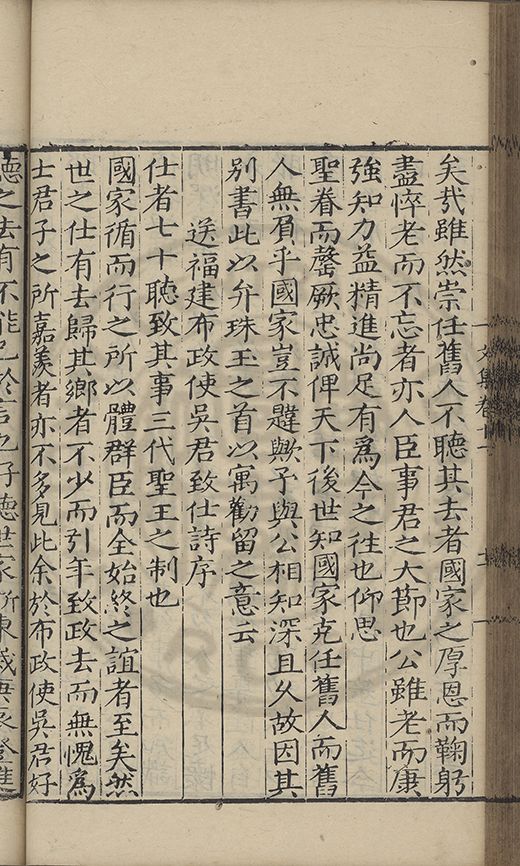 矣哉雖然崇任舊人不聽其去者國家之厚恩而鞠躬
盡悴老而不忘者亦人臣事君之大節也公雖老而康
強知力益精進尚足有爲今之徃也仰思
聖眷而罄厥忠誠俾天下後世知國家克任舊人而舊
人無負乎國家豈不韙歟予與公相知深且久故因其
别書此以弁珠玉之首以寓勸留之意云
送福建布政使吳君致仕詩序
仕者七十聽致其事三代聖王之制也
國家循而行之所以體群臣而全始終之誼者至矣然
世之仕有去歸其鄉者不少而引年致政去而無愧爲
士君子之所嘉羨者亦不多見此余於布政使吳君好
德之去有不能已於言也好德世家浙東歲庚辰登進
文集卷十一